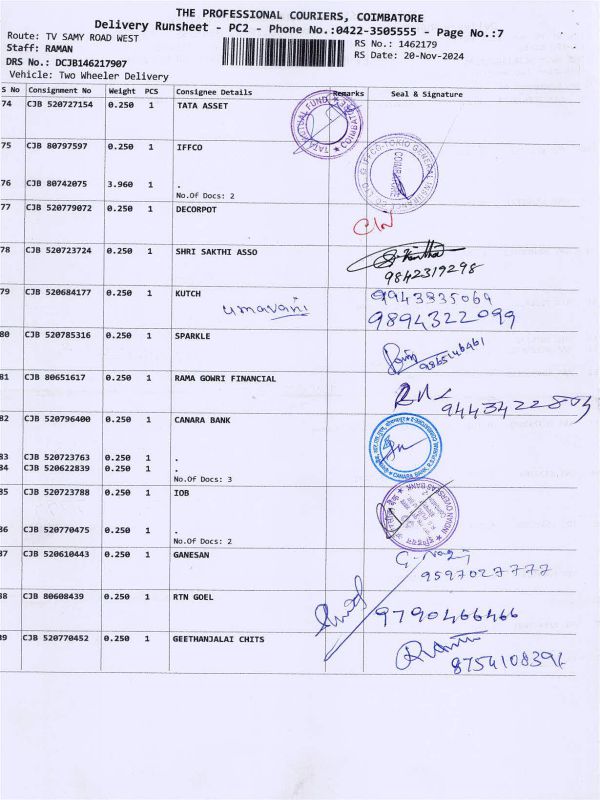 THE PROFESSIONAL COURIERS, COIMBATORE
Delivery Runsheet - PC2 - Phone No.:0422-3505555 - Page No.:7
Route: TV SAMY ROAD WEST
Staff: RAMAN
RS No.: 1462179
DRS No.: DCJB146217907
RS Date: 20-Nov-2024
Vehicle: Two Wheeler Delivery
S No Consignment No Weight PCS Consignee Details Remarks Seal & Signature
74 CJB 520727154 0.250 1 TATA ASSET
TATA MUTUAL FUND
75 CJB 80797597 0.250 1 IFFCO
IFFCO-TOKIO GENERAL INSURANCE CO. LTD.
COIMBATORE
76 CJB 80742075 3.960 1 .
No.Of Docs: 2
77 CJB 520779072 0.250 1 DECORPOT
78 CJB 520723724 0.250 1 SHRI SAKTHI ASSO
9842319298
79 CJB 520684177 0.250 1 KUTCH
umavani
9943835069
9894322099
80 CJB 520785316 0.250 1 SPARKLE
81 CJB 80651617 0.250 1 RAMA GOWRI FINANCIAL
82 CJB 520796400 0.250 1 CANARA BANK
CANARA BANK
83 CJB 520723763 0.250 1 .
84 CJB 520622839 0.250 1 .
No.Of Docs: 3
85 CJB 520723788 0.250 1 IOB
INDIAN OVERSEAS BANK
86 CJB 520770475 0.250 1 .
No.Of Docs: 2
87 CJB 520610443 0.250 1 GANESAN
9597027777
88 CJB 80608439 0.250 1 RTN GOEL
9790466466
89 CJB 520770452 0.250 1 GEETHANJALAI CHITS